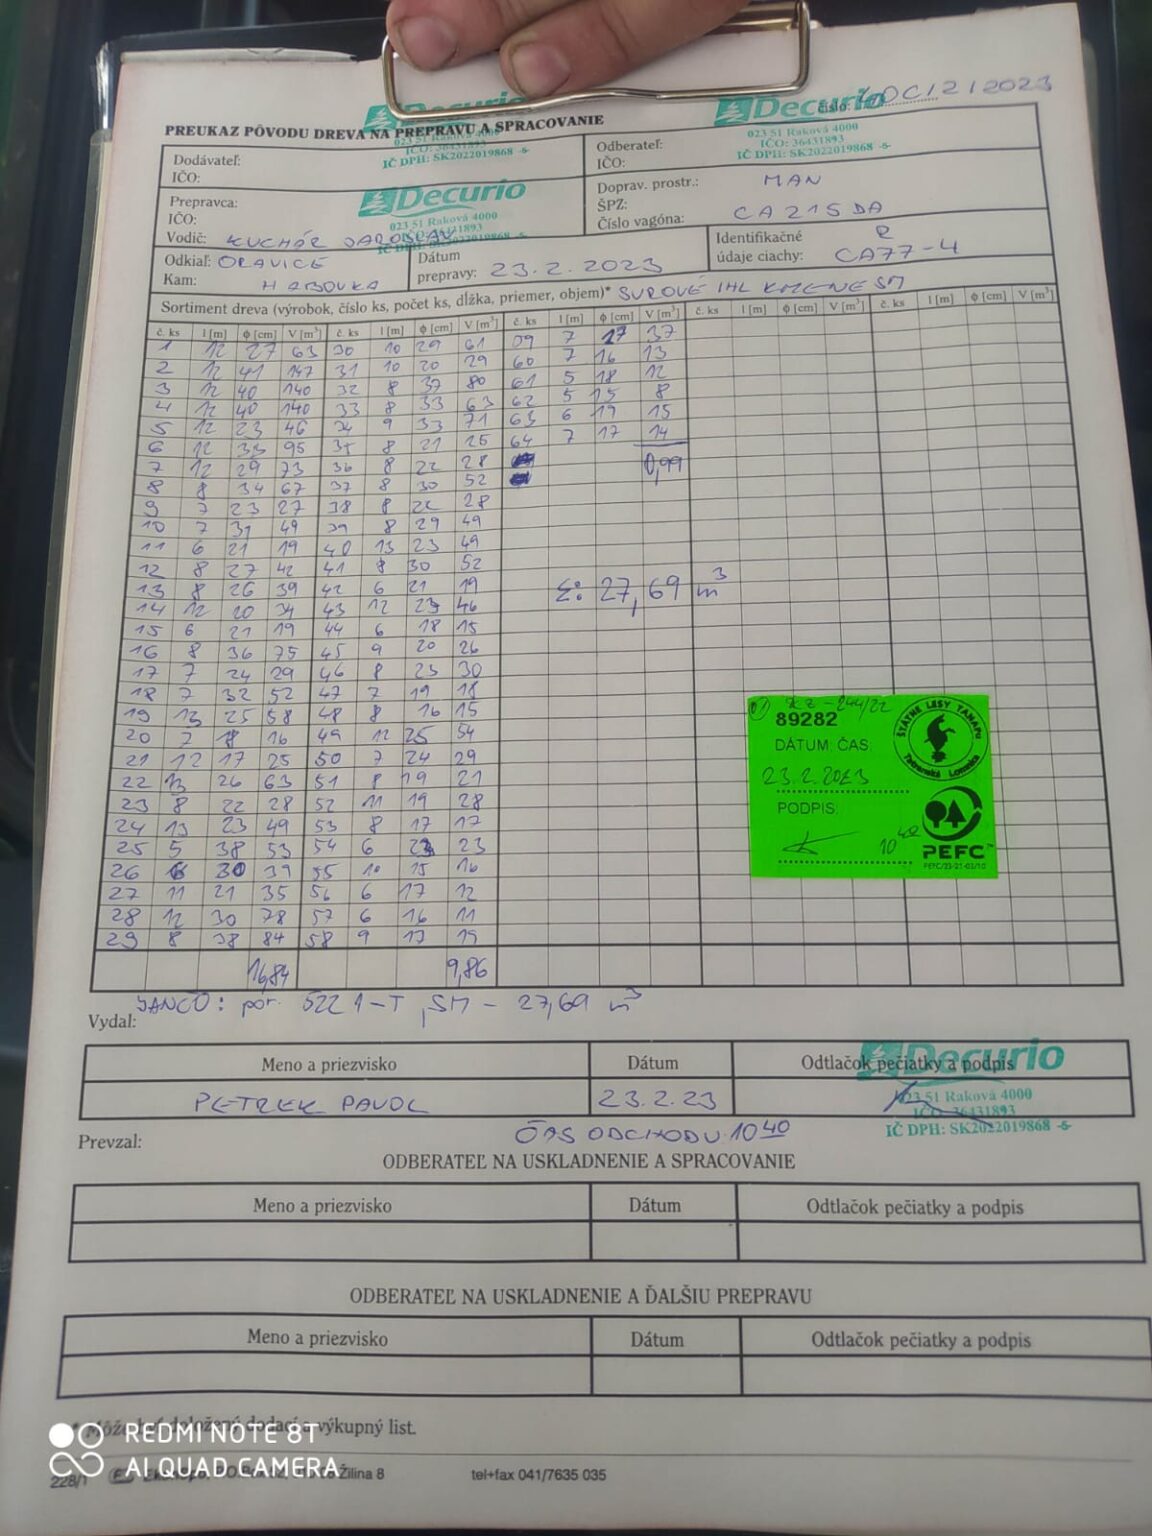 Decurio
Decurio
PREUKAZ PÔVODU DREVA NA PREPRAVU A SPRACOVANIE
023 51 Raková 4000
IČO: 36431893
IČ DPH: SK2022019868 -5-
023 51 Raková 4000
IČO: 36431893
IČ DPH: SK2022019868 -5-
Dodávateľ:
IČO:
Odberateľ:
IČO:
Prepravca:
IČO:
Decurio
023 51 Raková 4000
Vodič: KUCHÁR JAROSLAV
Doprav. prostr.: MAN
ŠPZ:
Číslo vagóna: CA 215 DA
Odkiaľ: ORAVICE
Kam: HABOVKA
Dátum
prepravy: 23.2.2023
Identifikačné R
údaje ciachy: CA77-4
Sortiment dreva (výrobok, číslo ks, počet ks, dĺžka, priemer, objem)* SUROVÉ IHL KMENE SM
č. ks l [m] φ [cm] V [m³] č. ks l [m] φ [cm] V [m³] č. ks l [m] φ [cm] V [m³] č. ks l [m] φ [cm] V [m³] č. ks l [m] φ [cm] V [m³]
1 12 27 63 30 10 29 61 7 17 37
2 12 41 147 31 10 20 29 60 7 16 13
3 12 40 140 32 8 37 80 61 5 18 12
4 12 40 140 33 8 33 63 62 5 15 8
5 12 23 46 34 9 33 71 63 6 19 15
6 12 33 95 35 8 21 25 64 7 17 14
7 12 29 73 36 8 22 28 0,99
8 8 34 67 37 8 30 52
9 7 23 27 38 8 22 28
10 7 31 49 39 8 29 49
11 6 21 19 40 13 23 49
12 8 27 42 41 8 30 52
13 8 26 39 42 6 21 19 Σ: 27,69 m³
14 12 20 34 43 12 23 46
15 6 21 19 44 6 18 15
16 8 36 75 45 9 20 26
17 7 24 29 46 8 23 30
18 7 32 52 47 7 19 18
19 13 25 58 48 8 16 15
20 7 18 16 49 12 25 54
21 12 17 25 50 7 24 29
22 13 26 63 51 8 19 21
23 8 22 28 52 11 19 28
24 13 23 49 53 8 17 17
25 5 38 53 54 6 23 23
26 6 30 39 55 10 15 16
27 11 21 35 56 6 17 12
28 12 30 78 57 6 16 11
29 8 38 84 58 9 17 19
16,84 9,86
89282
DÁTUM: ČAS:
23.2.2023
PODPIS:
10 40
ŠTÁTNE LESY TANAPu
Tatranská Lomnica
PEFC
PEFC/23-21-03/10
JANČO: por. 522 1-T, SM - 27,69 m³
Vydal:
Meno a priezvisko Dátum Odtlačok pečiatky a podpis
PETREK PAVOL 23.2.23
Decurio
023 51 Raková 4000
IČO: 36431893
IČ DPH: SK2022019868 -5-
Prevzal:
ČAS ODCHODU 10 40
ODBERATEĽ NA USKLADNENIE A SPRACOVANIE
Meno a priezvisko Dátum Odtlačok pečiatky a podpis
ODBERATEĽ NA USKLADNENIE A ĎALŠIU PREPRAVU
Meno a priezvisko Dátum Odtlačok pečiatky a podpis
výkupný list.
REDMI NOTE 8T
AI QUAD CAMERA
228/1 Žilina 8 tel+fax 041/7635 035